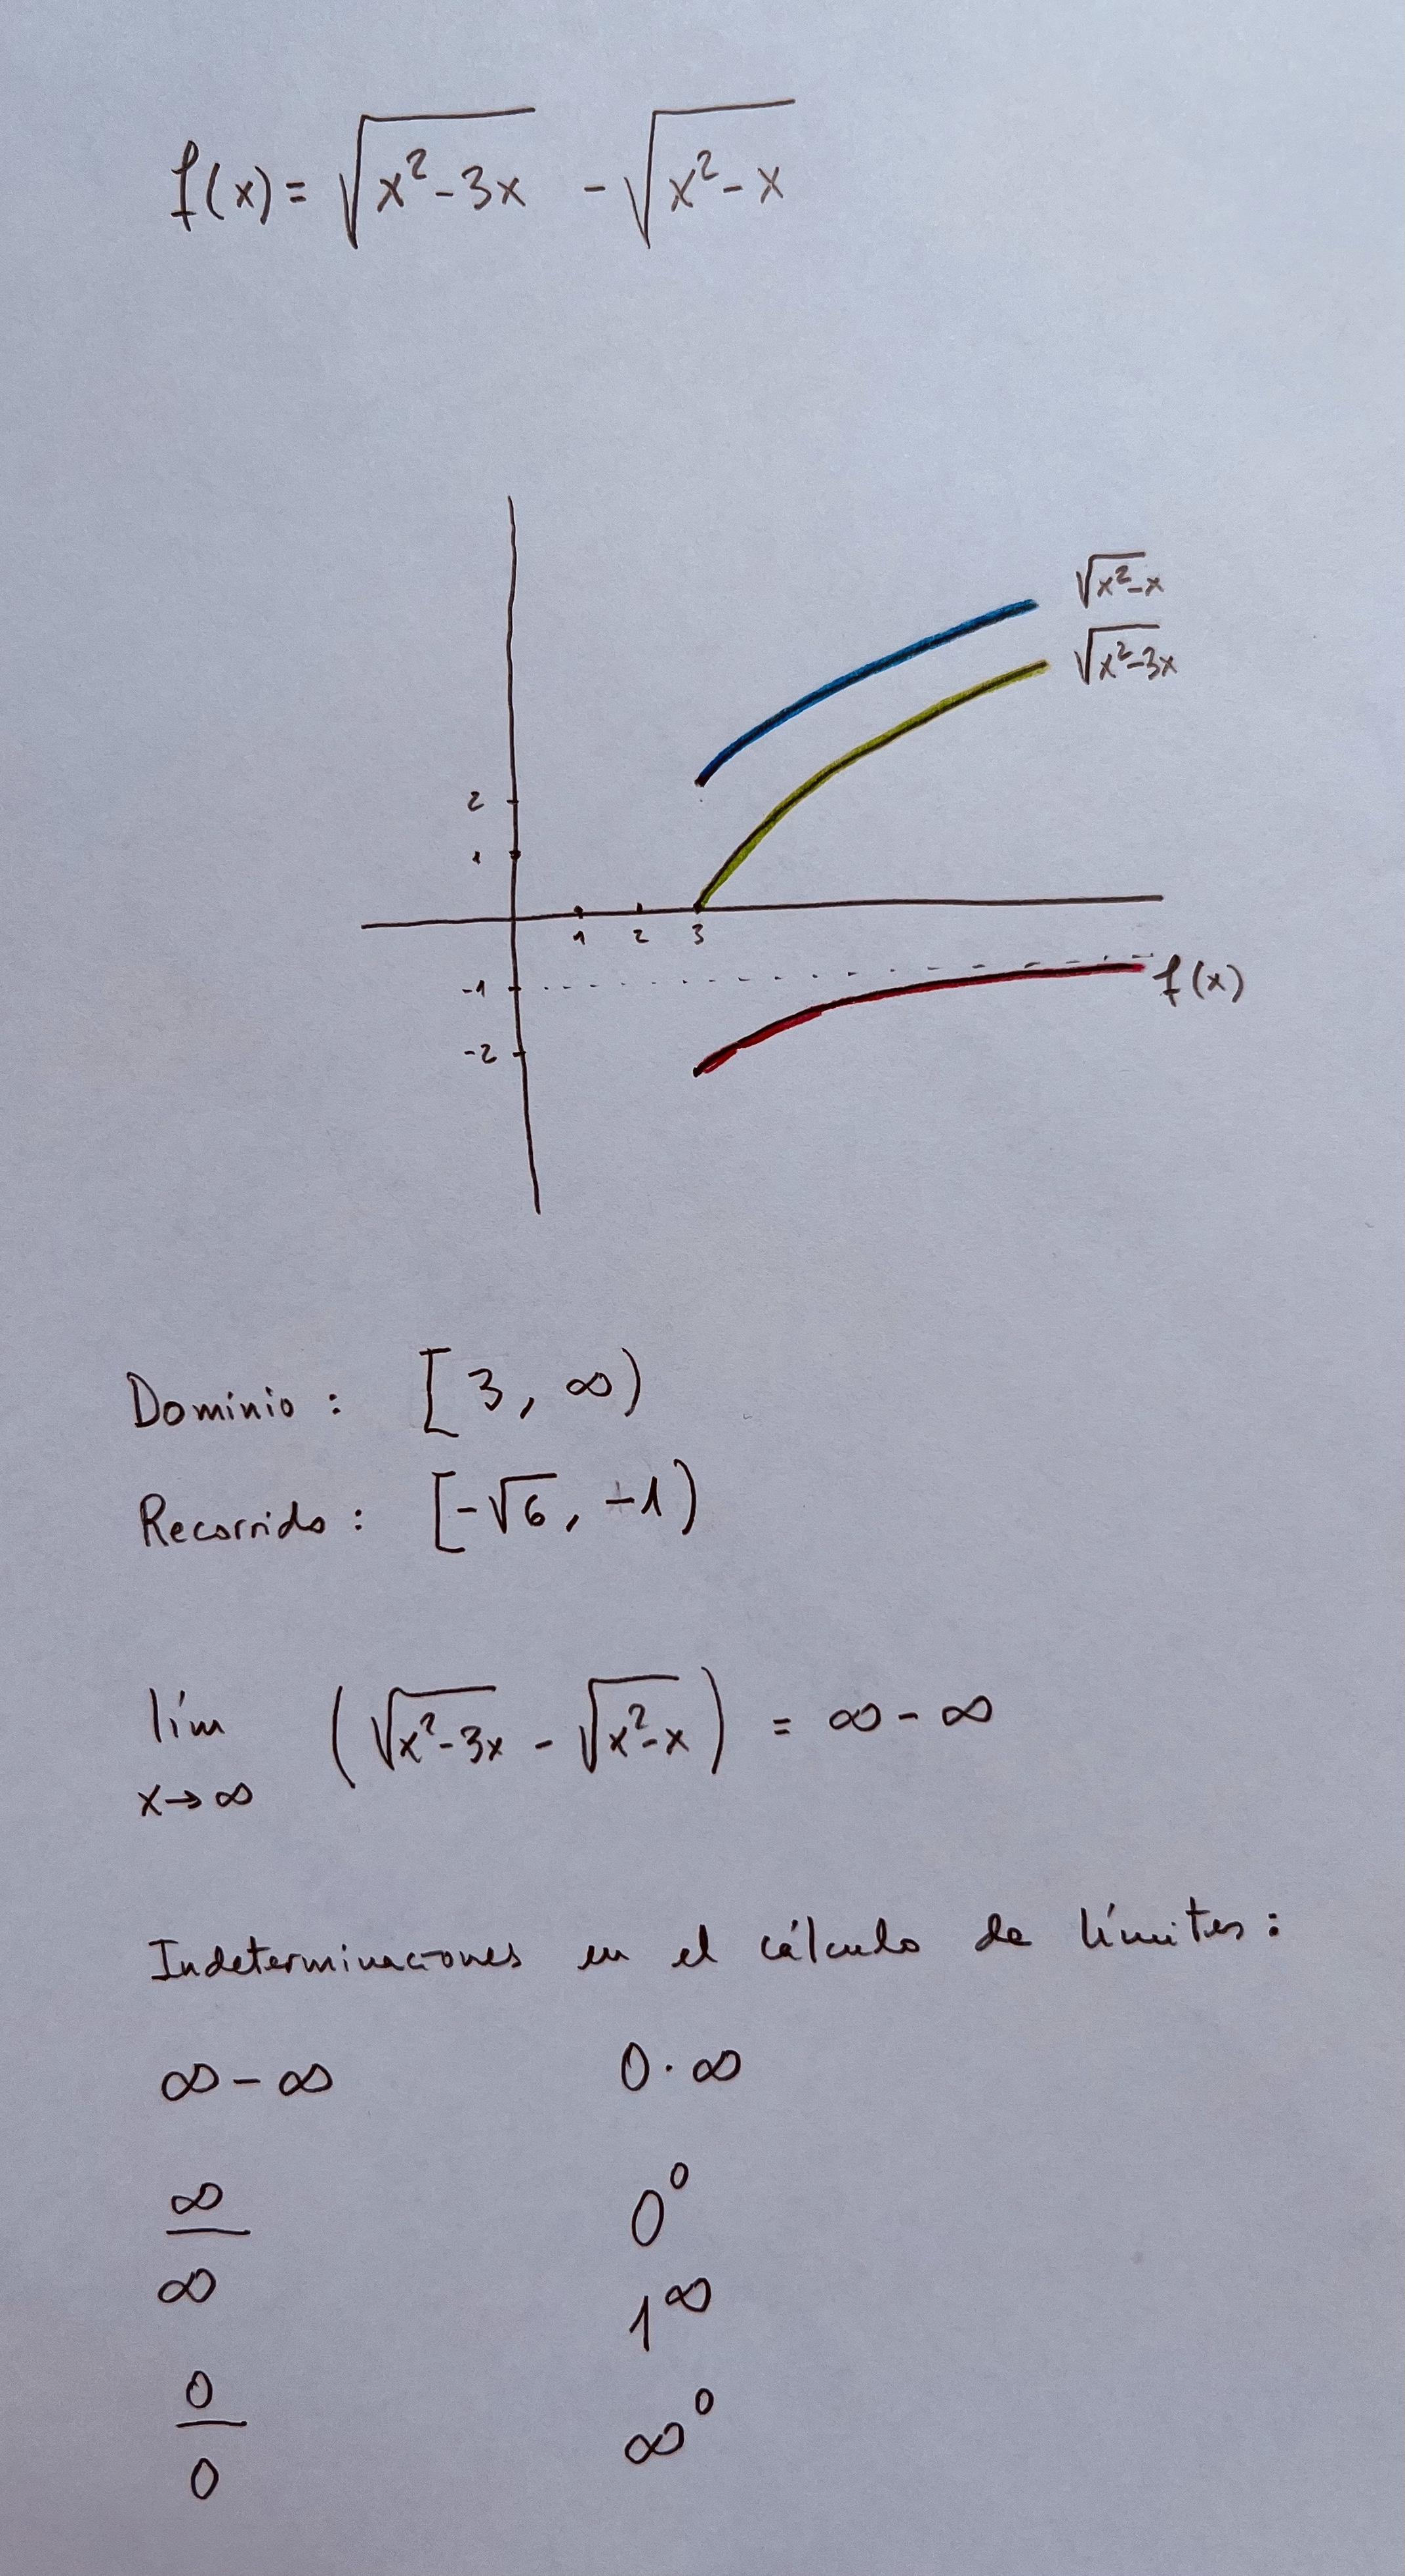 f(x) = √(x²-3x) - √(x²-x)
√(x²-x)
√(x²-3x)
2
1
1 2 3
-1
f(x)
-2
Dominio : [3, ∞)
Recorrido : [-√6, -1)
lím (√(x²-3x) - √(x²-x)) = ∞ - ∞
x→∞
Indeterminaciones en el cálculo de límites :
∞ - ∞ 0·∞
∞/∞ 0⁰
1^∞
0/0 ∞⁰